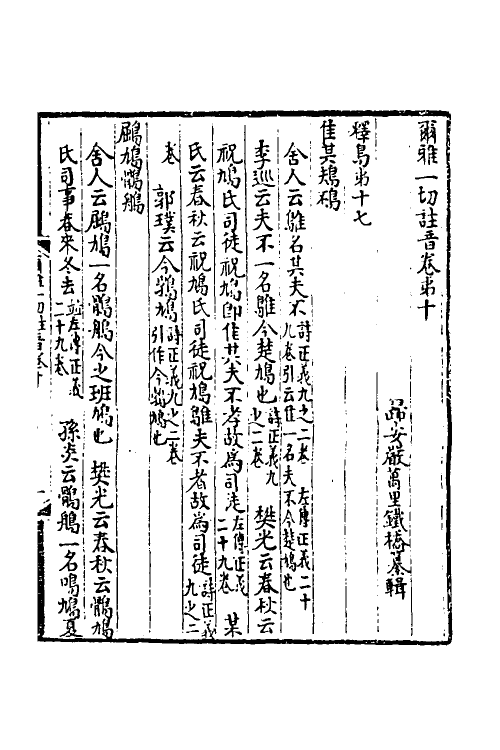 爾雅一切註音卷苐十
歸安嚴萬里鐵橋纂輯
釋鳥苐十七
隹其鳺鴀
舍人云鵻名其夫不
詩正義九之二卷 左傳正義二十
九卷引云隹一名夫不今楚鳩也
李巡云夫不一名鵻今楚鳩也
詩正義九
之二卷
樊光云春秋云
祝鳩氏司徒祝鳩即隹其夫不孝故為司徒
左傳正義
二十九卷
某
氏云春秋云祝鳩氏司徒祝鳩鵻夫不者故為司徒
詩正義
九之二
卷
郭璞云今鵓鳩
詩正義九之二卷
引作今鶉鳩也
鶌鳩鶻鵃
舍人云鶌鳩一名鶻鵃今之班鳩也 樊光云春秋云鶻鳩
氏司事春來冬去
並左傳正義
二十九卷
孫炎云鶻鵃一名鳴鳩夏
爾雅一切註音卷十 一